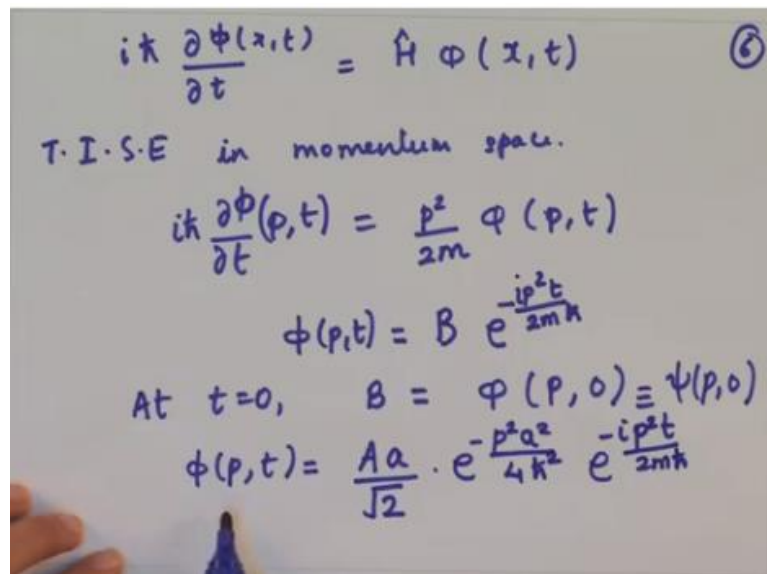 iħ ∂φ(x,t)/∂t = Ĥ φ(x,t) ⑥
T.I.S.E in momentum space.
iħ ∂φ/∂t (p,t) = p²/2m φ(p,t)
φ(p,t) = B e^(-ip²t/2mħ)
At t=0, B = φ(p,0) ≡ ψ(p,0)
φ(p,t) = Aa/√2 · e^(-p²a²/4ħ²) e^(-ip²t/2mħ)